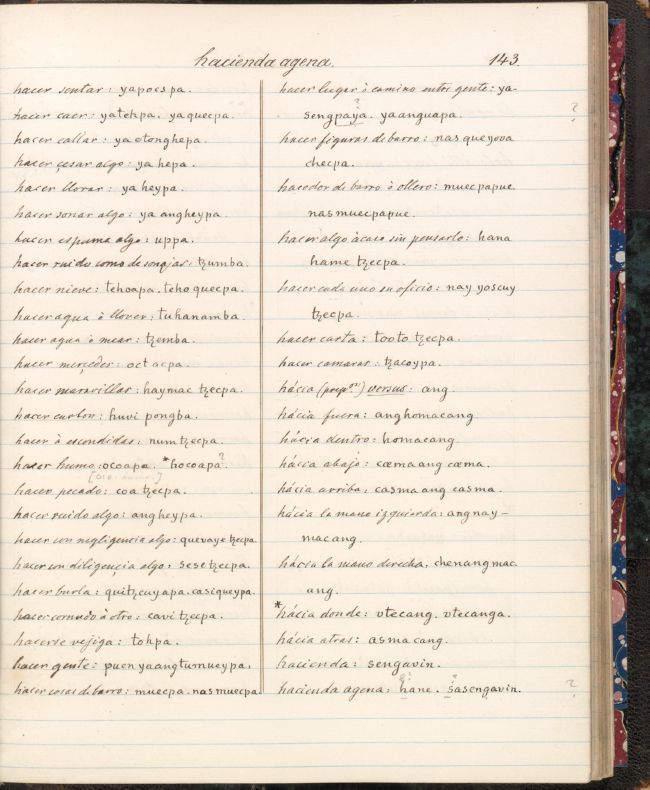 hacienda agena.
143.
hacer sentar: yapoespa.
hacer caer: yatehpa. yaquecpa.
hacer callar: ya otonghepa.
hacer çesar algo: ya hepa.
hacer llorar: ya heypa.
hacer sonar algo: ya angheypa.
hacer espuma algo: uppa.
hacer ruido como de sonajas: tzumba.
hacer nieve: tehoapa. teho quecpa.
hacer agua ò llover: tuhanamba.
hacer agua ò mear: tzemba.
hacer merçedes: octacpa.
hacer maravillas: haymac tzecpa.
hacer carbon: huvi pongba.
hacer à escondidas: numtzecpa.
hacer humo: ocoapa. *hocoapa?
hacer pecado: coa tzecpa.
hacer ruido algo: angheypa.
hacer con negligencia algo: quevaye tzecpa
hacer con diligençia algo: sese tzecpa.
hacer burla: quitzcuyapa. casiqueypa.
hacer cornudo à otro: cavi tzecpa.
hacerse vejiga: tohpa.
hacer gente: puen yaangtumueypa.
hacer cosas de barro: muecpa. nasmuecpa.
hacer lugar ò camino entre gente: ya-
sengpaya. yaanguapa. ?
hacer figuras de barro: nas queyova
checpa.
hacedor de barro ò ollero: muecpapue.
nasmuecpapue.
hacer algo àcaso sin pensarlo: hana
hame tzecpa.
hacer cada uno su oficio: nay yoscuy
tzecpa.
hacer carta: tooto tzecpa.
hacer camaras: tzacoypa.
hácia (prepon) versus: ang.
hácia fuera: anghomacang
hácia dentro: homacang.
hácia abajo: cœmaang cœma.
hácia arriba: casmaang casma.
hácia la mano izquierda: angnay-
macang.
hácia la mano derecha: chenangmac
ang.
*hácia donde: vtecang. vtecanga.
hácia atras: asmacang.
hacienda: sengavin.
hacienda agena: hane. sasengavin. ?